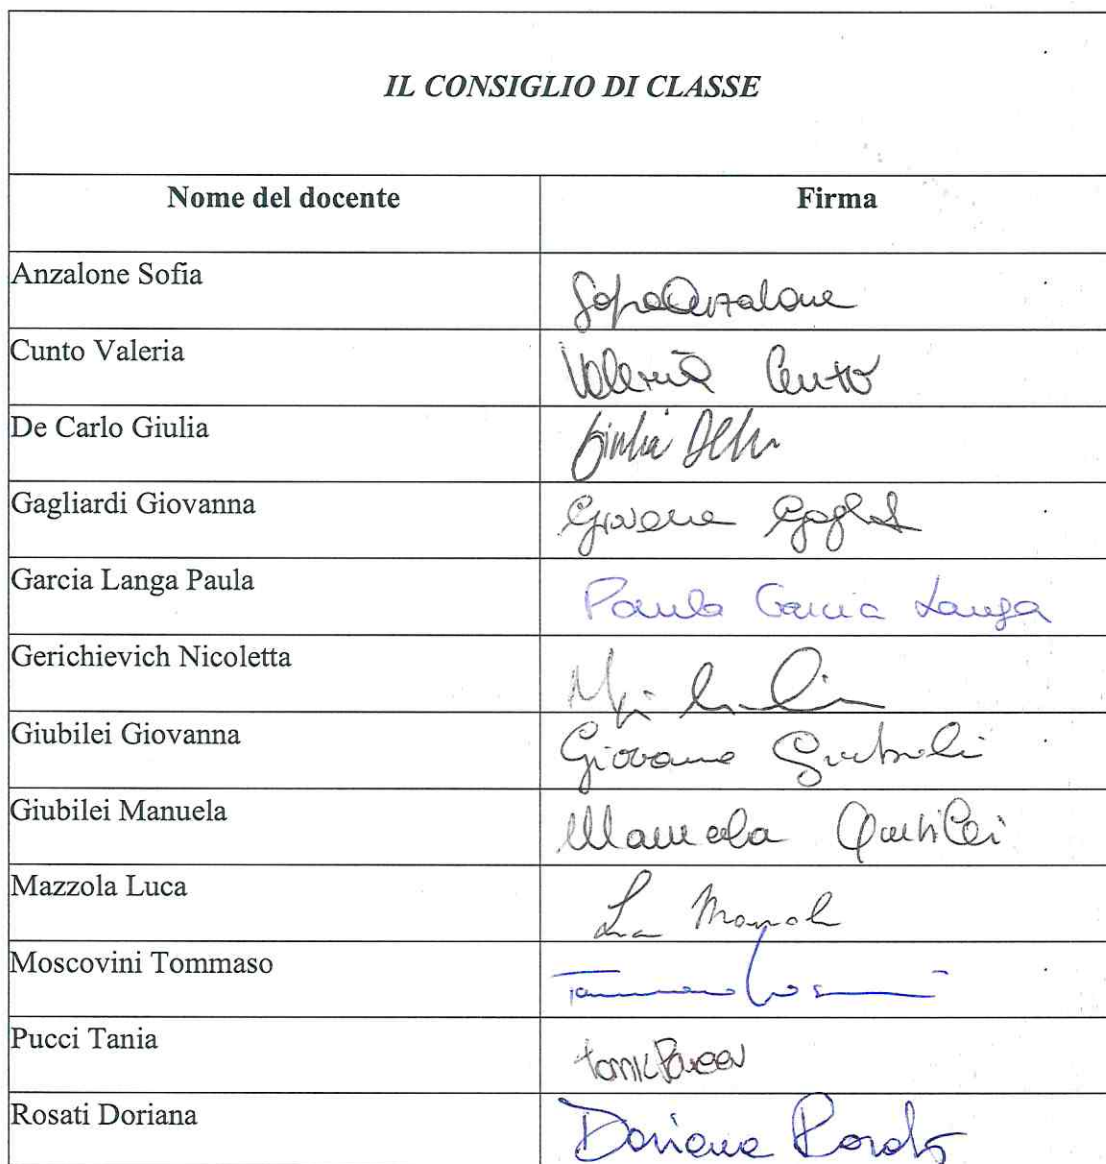 IL CONSIGLIO DI CLASSE
Nome del docente Firma
Anzalone Sofia Sofia Anzalone
Cunto Valeria Valeria Cunto
De Carlo Giulia Giulia
Gagliardi Giovanna Giovanna
Garcia Langa Paula Paula Garcia Langa
Gerichievich Nicoletta
Giubilei Giovanna Giovanna Giubilei
Giubilei Manuela Manuela Giubilei
Mazzola Luca
Moscovini Tommaso
Pucci Tania Tania Pucci
Rosati Doriana Doriana Rosati